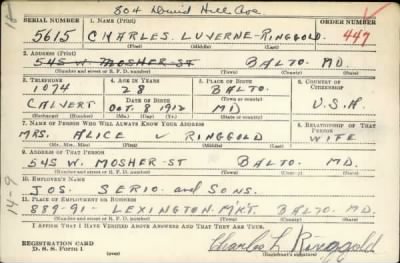 804 David Hill Ave
SERIAL NUMBER 1. NAME (Print) ORDER NUMBER
5615 CHARLES LUVERNE RINGGOLD 447
(First) (Middle) (Last)
2. ADDRESS (Print)
545 W. MOSHER ST BALTO. MD.
(Number and street or R. F. D. number) (Town) (County) (State)
3. TELEPHONE 4. AGE IN YEARS 5. PLACE OF BIRTH 6. COUNTRY OF CITIZENSHIP
1074 28 BALTO.
DATE OF BIRTH (Town or county)
CALVERT OCT. 8 1912 MD U.S.A.
(Exchange) (Number) (Mo.) (Day) (Yr.) (State or country)
7. NAME OF PERSON WHO WILL ALWAYS KNOW YOUR ADDRESS 8. RELATIONSHIP OF THAT PERSON
MRS. ALICE V RINGGOLD WIFE
(Mr., Mrs., Miss) (First) (Middle) (Last)
9. ADDRESS OF THAT PERSON
545 W. MOSHER-ST BALTO. MD.
(Number and street or R. F. D. number) (Town) (County) (State)
10. EMPLOYER'S NAME
JOS. SERIO and SONS.
11. PLACE OF EMPLOYMENT OR BUSINESS
889-91- LEXINGTON MK'T. BALTO MD.
(Number and street or R. F. D. number) (Town) (County) (State)
I AFFIRM THAT I HAVE VERIFIED ABOVE ANSWERS AND THAT THEY ARE TRUE.
REGISTRATION CARD
D. S. S. Form 1
Charles L Ringgold
(Registrant's signature)
14-9